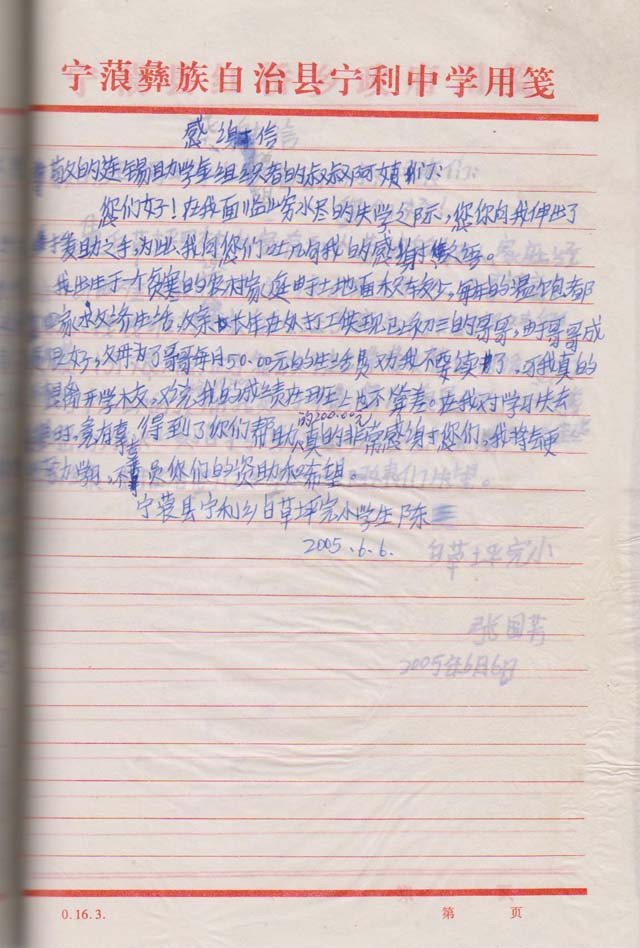 宁蒗彝族自治县宁利中学用笺
感谢信
敬的连锡助学金组织者的叔叔阿姨们:
您们好!在我面临山穷水尽的失学之际,您们向我伸出了
援助之手,为此我向您们吐向我的感谢
我出生于一个贫寒的农村家庭由于土地面积较少,每年的温饱都
家父经济生活,父亲长年在外打工供现已读初三的哥哥,由于哥哥成
好,父母为了哥哥每月50.00元的生活费劝我不要读书了,可我真的
想离开学校,对说我的成绩在班上也不算差。在我对学习失去
时,竟有幸得到了你们帮助的200.00元真的非常感谢于您们,我将会更
加努力,不辜负您们的资助和希望。
宁蒗县宁利乡白草坪完小学生陈
2005.6.6.
白草坪完小
张国芳
2005年6月6日
0.16.3.
第 页